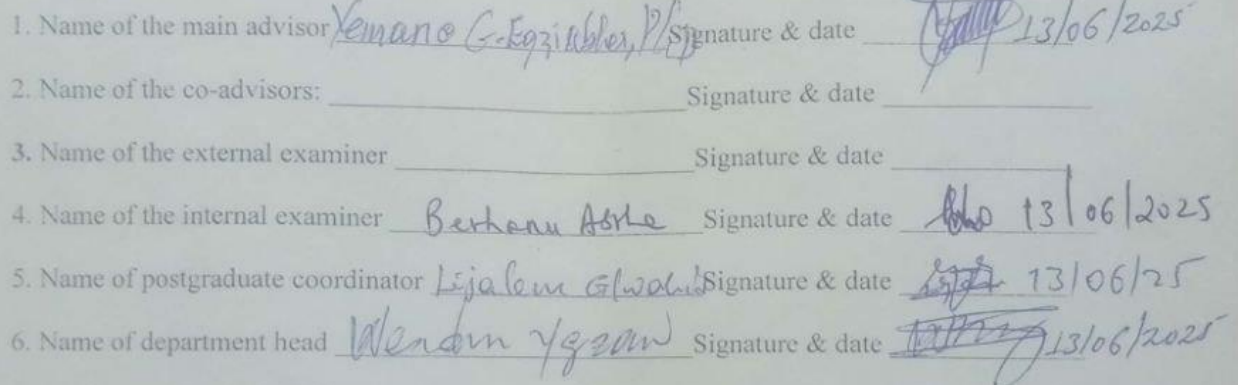 1. Name of the main advisor Yemane G-Egziabher, Signature & date 13/06/2025
2. Name of the co-advisors: Signature & date
3. Name of the external examiner Signature & date
4. Name of the internal examiner Berhanu Signature & date 13/06/2025
5. Name of postgraduate coordinator Lijalem Signature & date 13/06/25
6. Name of department head Signature & date 13/06/2025